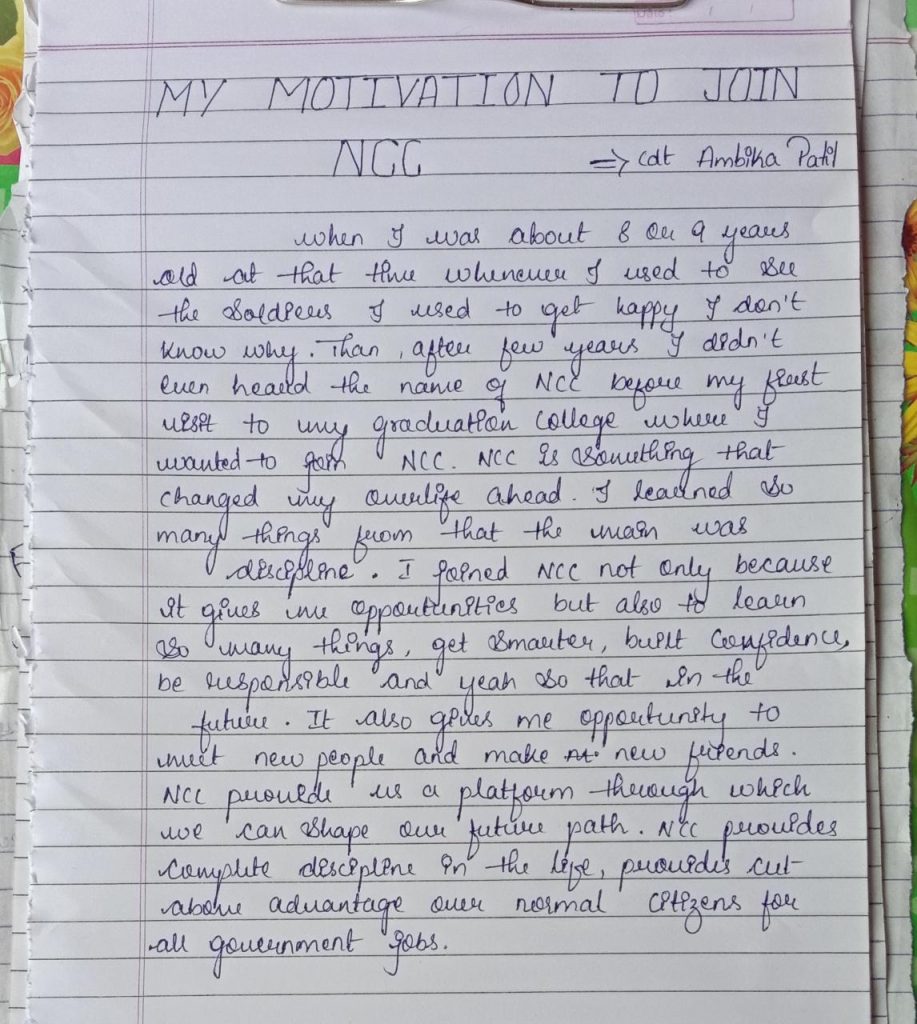 Date: / /
MY MOTIVATION TO JOIN
NCC => Cdt Ambika Patil
when I was about 8 or 9 years
old at that time whenever I used to see
the soldiers I used to get happy I don't
know why. Than, after few years I didn't
even heard the name of NCC before my first
visit to my graduation college where I
wanted to join NCC. NCC is something that
changed my overlife ahead. I learned so
many things from that the main was
discipline. I joined NCC not only because
it gives me opportunities but also to learn
so many things, get smarter, built confidence,
be responsible and yeah so that in the
future. It also gives me opportunity to
meet new people and make new friends.
NCC provide us a platform through which
we can shape our future path. NCC provides
complete discipline in the life, provides cut
above advantage over normal citizens for
all government jobs.